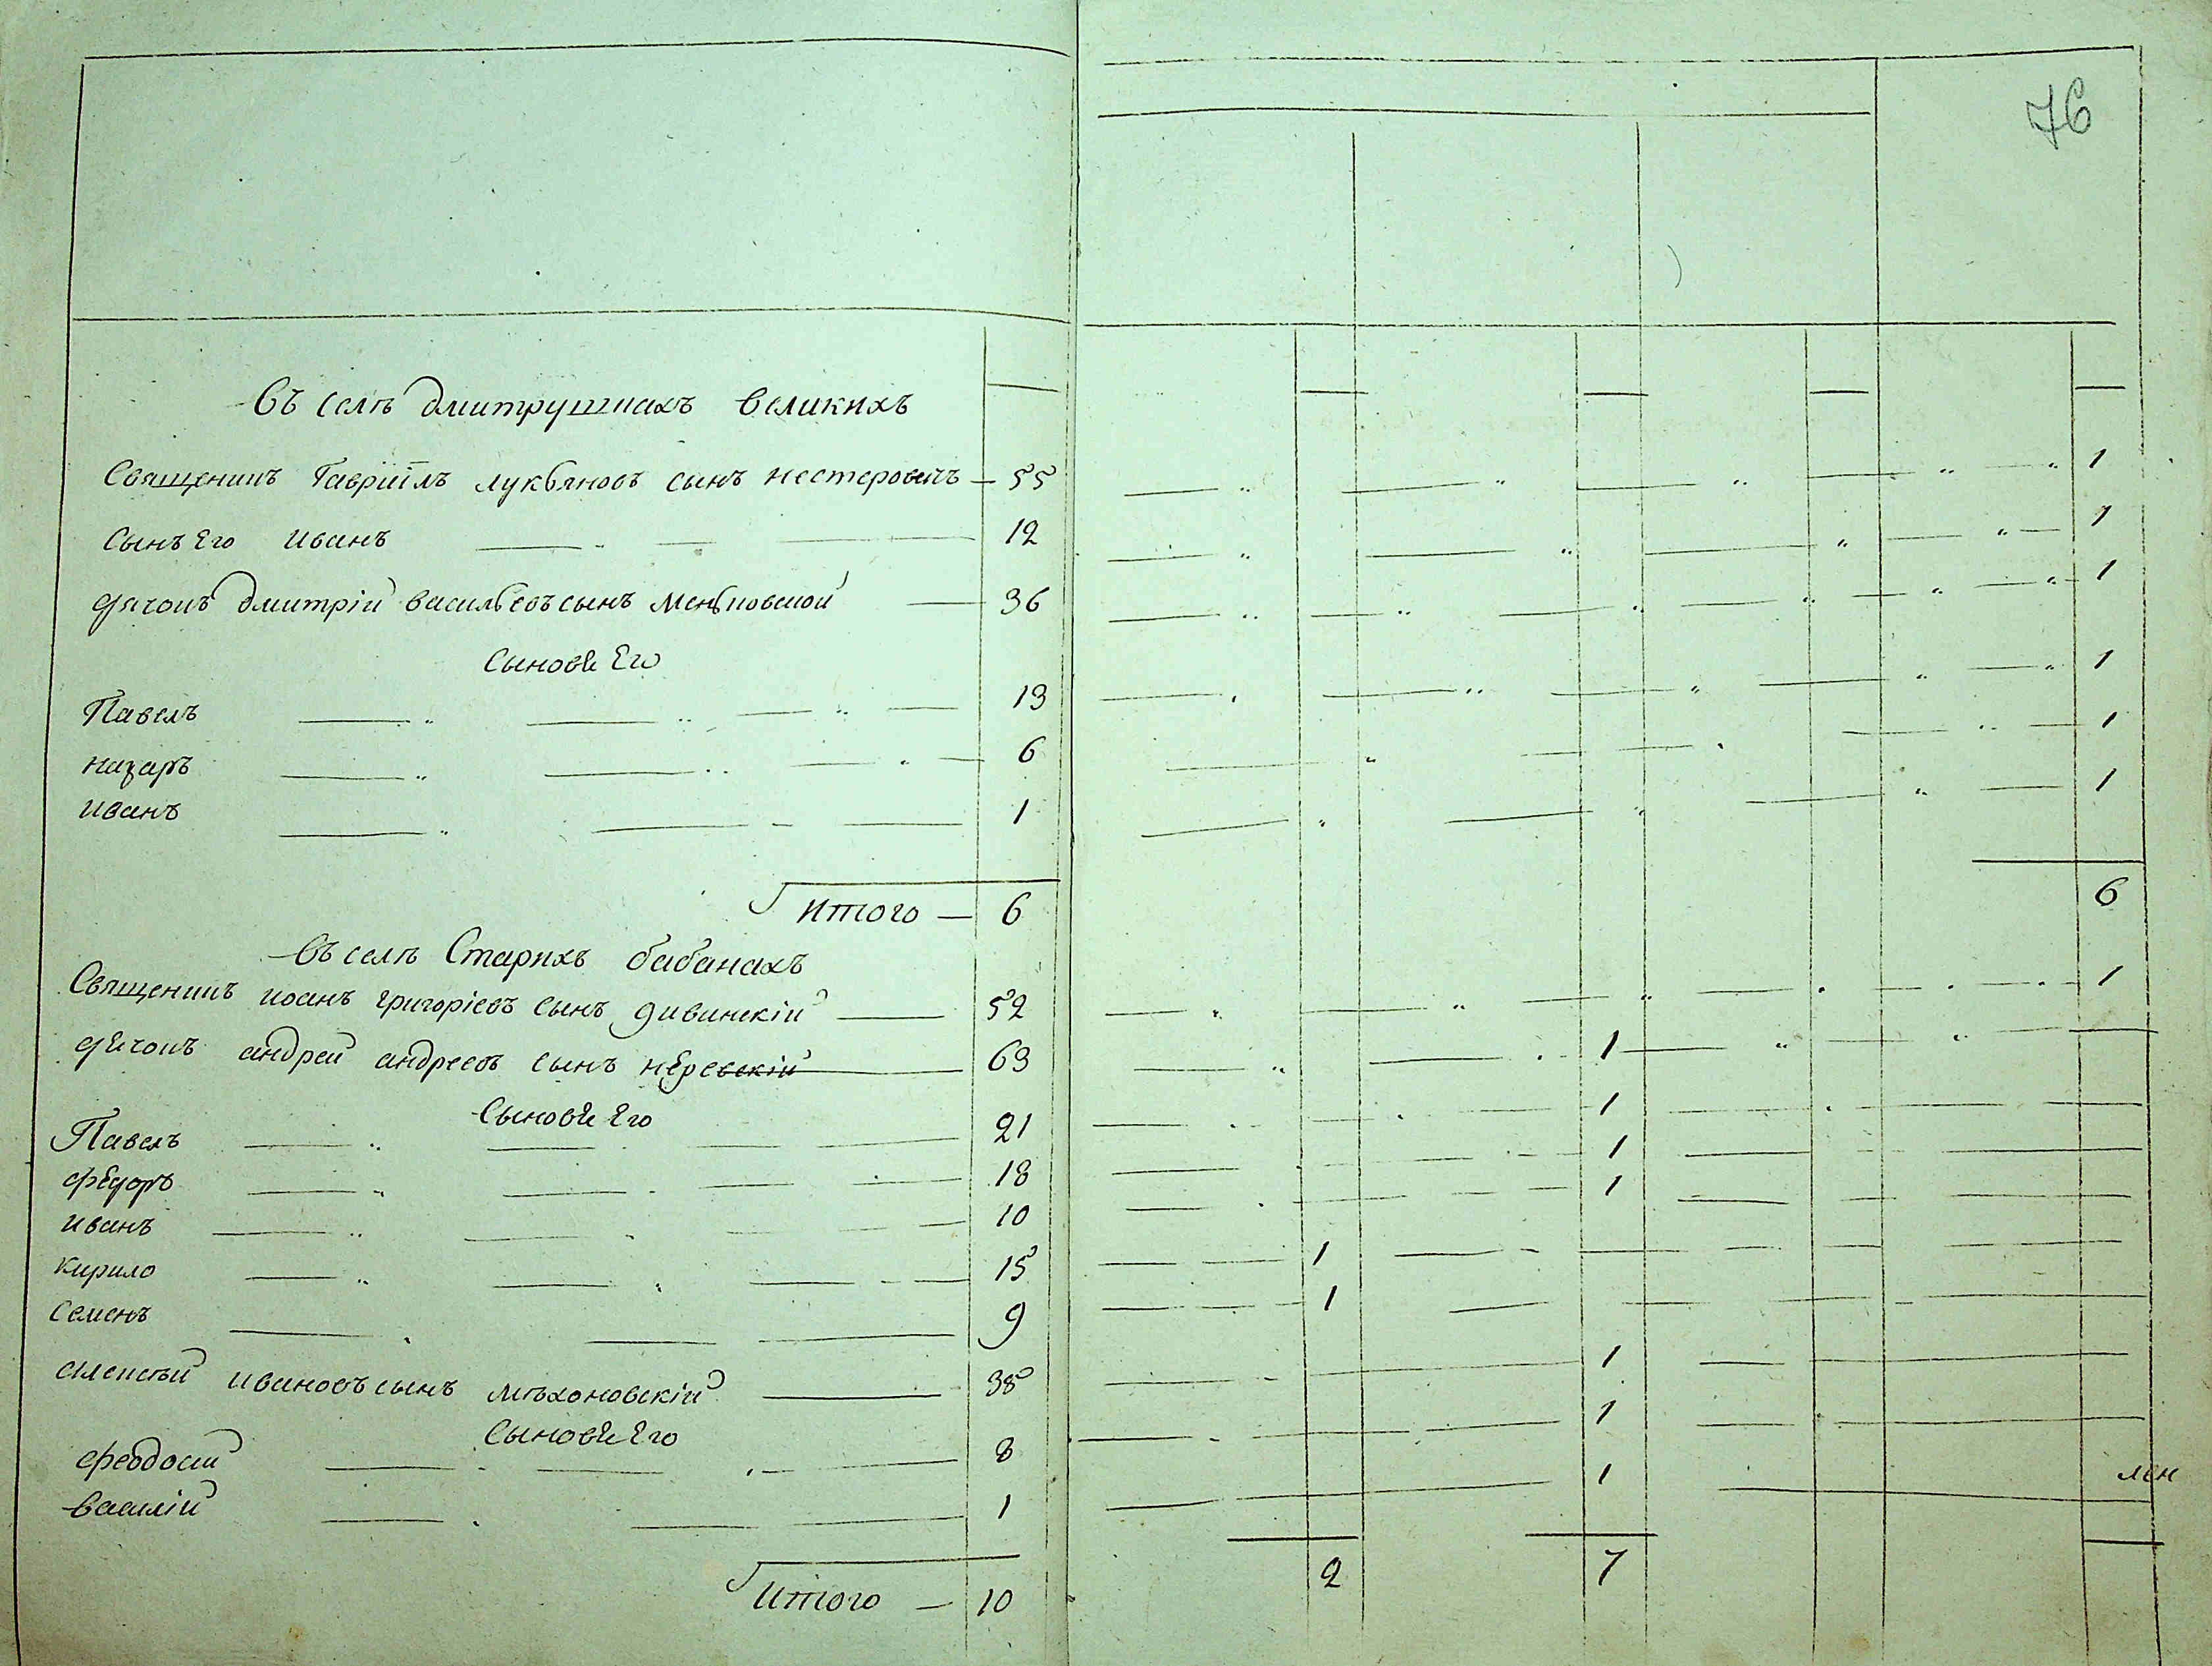 76
Въ селѣ дмитрушкахъ великихъ
Священикъ Гавріилъ лукьяновъ сынъ нестеровичъ — 55 1
Сынъ Его иванъ 12 1
дячокъ дмитрій васильевъ сынъ меньковской 36 1
Сыновѣ Его
Павелъ 13 1
назаръ 6 1
иванъ 1 1
итого — 6 6
Въ селѣ Старихъ бабанахъ
Священикъ иоанъ григоріевъ сынъ дивинскій 52 1
дѣчокъ андрей андреевъ сынъ 63 1
Сыновѣ Его
Павелъ 21 1
федоръ 18 1
иванъ 10 1
кирило 15 1
Семенъ 9 1
алексѣй ивановъ сынъ мѣхоновскій 38 1
Сыновѣ Его
феодосій 8 1
василій 1 1
Итого — 10 2 7